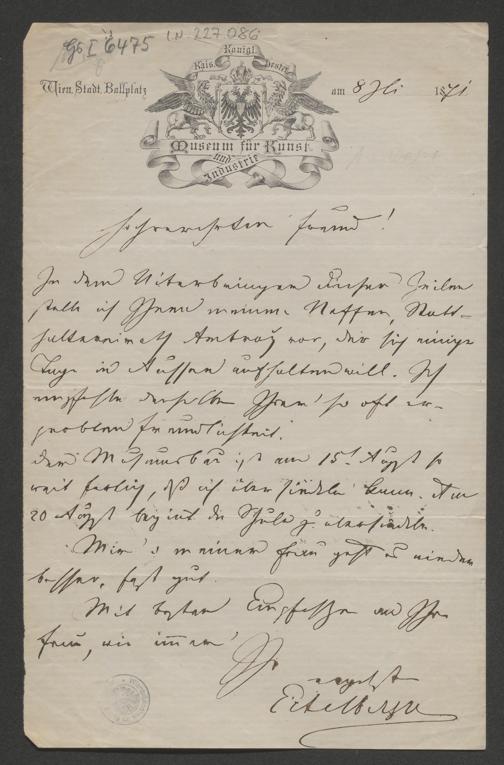 Gs I 6475
I.N. 227.086
Kais. Königl. Oesterr.
Wien, Stadt, Ballplatz
am 8 Juli 1871
Museum für Kunst
und
Industrie
Hochverehrter Freund!
In dem Ueberbringer dieser Zeilen
stelle ich Ihnen meinen Neffen, Statt-
haltereirath Ambros vor, der sich einige
Tage in Aussee aufhalten will. Ich
empfehle denselben Ihrer so oft er-
probten Freundlichkeit.
Der Museumsbau ist am 15t August so
weit fertig, daß ich übersiedeln kann. Am
20 August beginnt die Schule z. übersiedeln.
meiner Frau geht es wieder
besser, fast gut.
Mit besten Empfehlungen an Ihre
Frau, wie immer
Ihr
Eitelberger